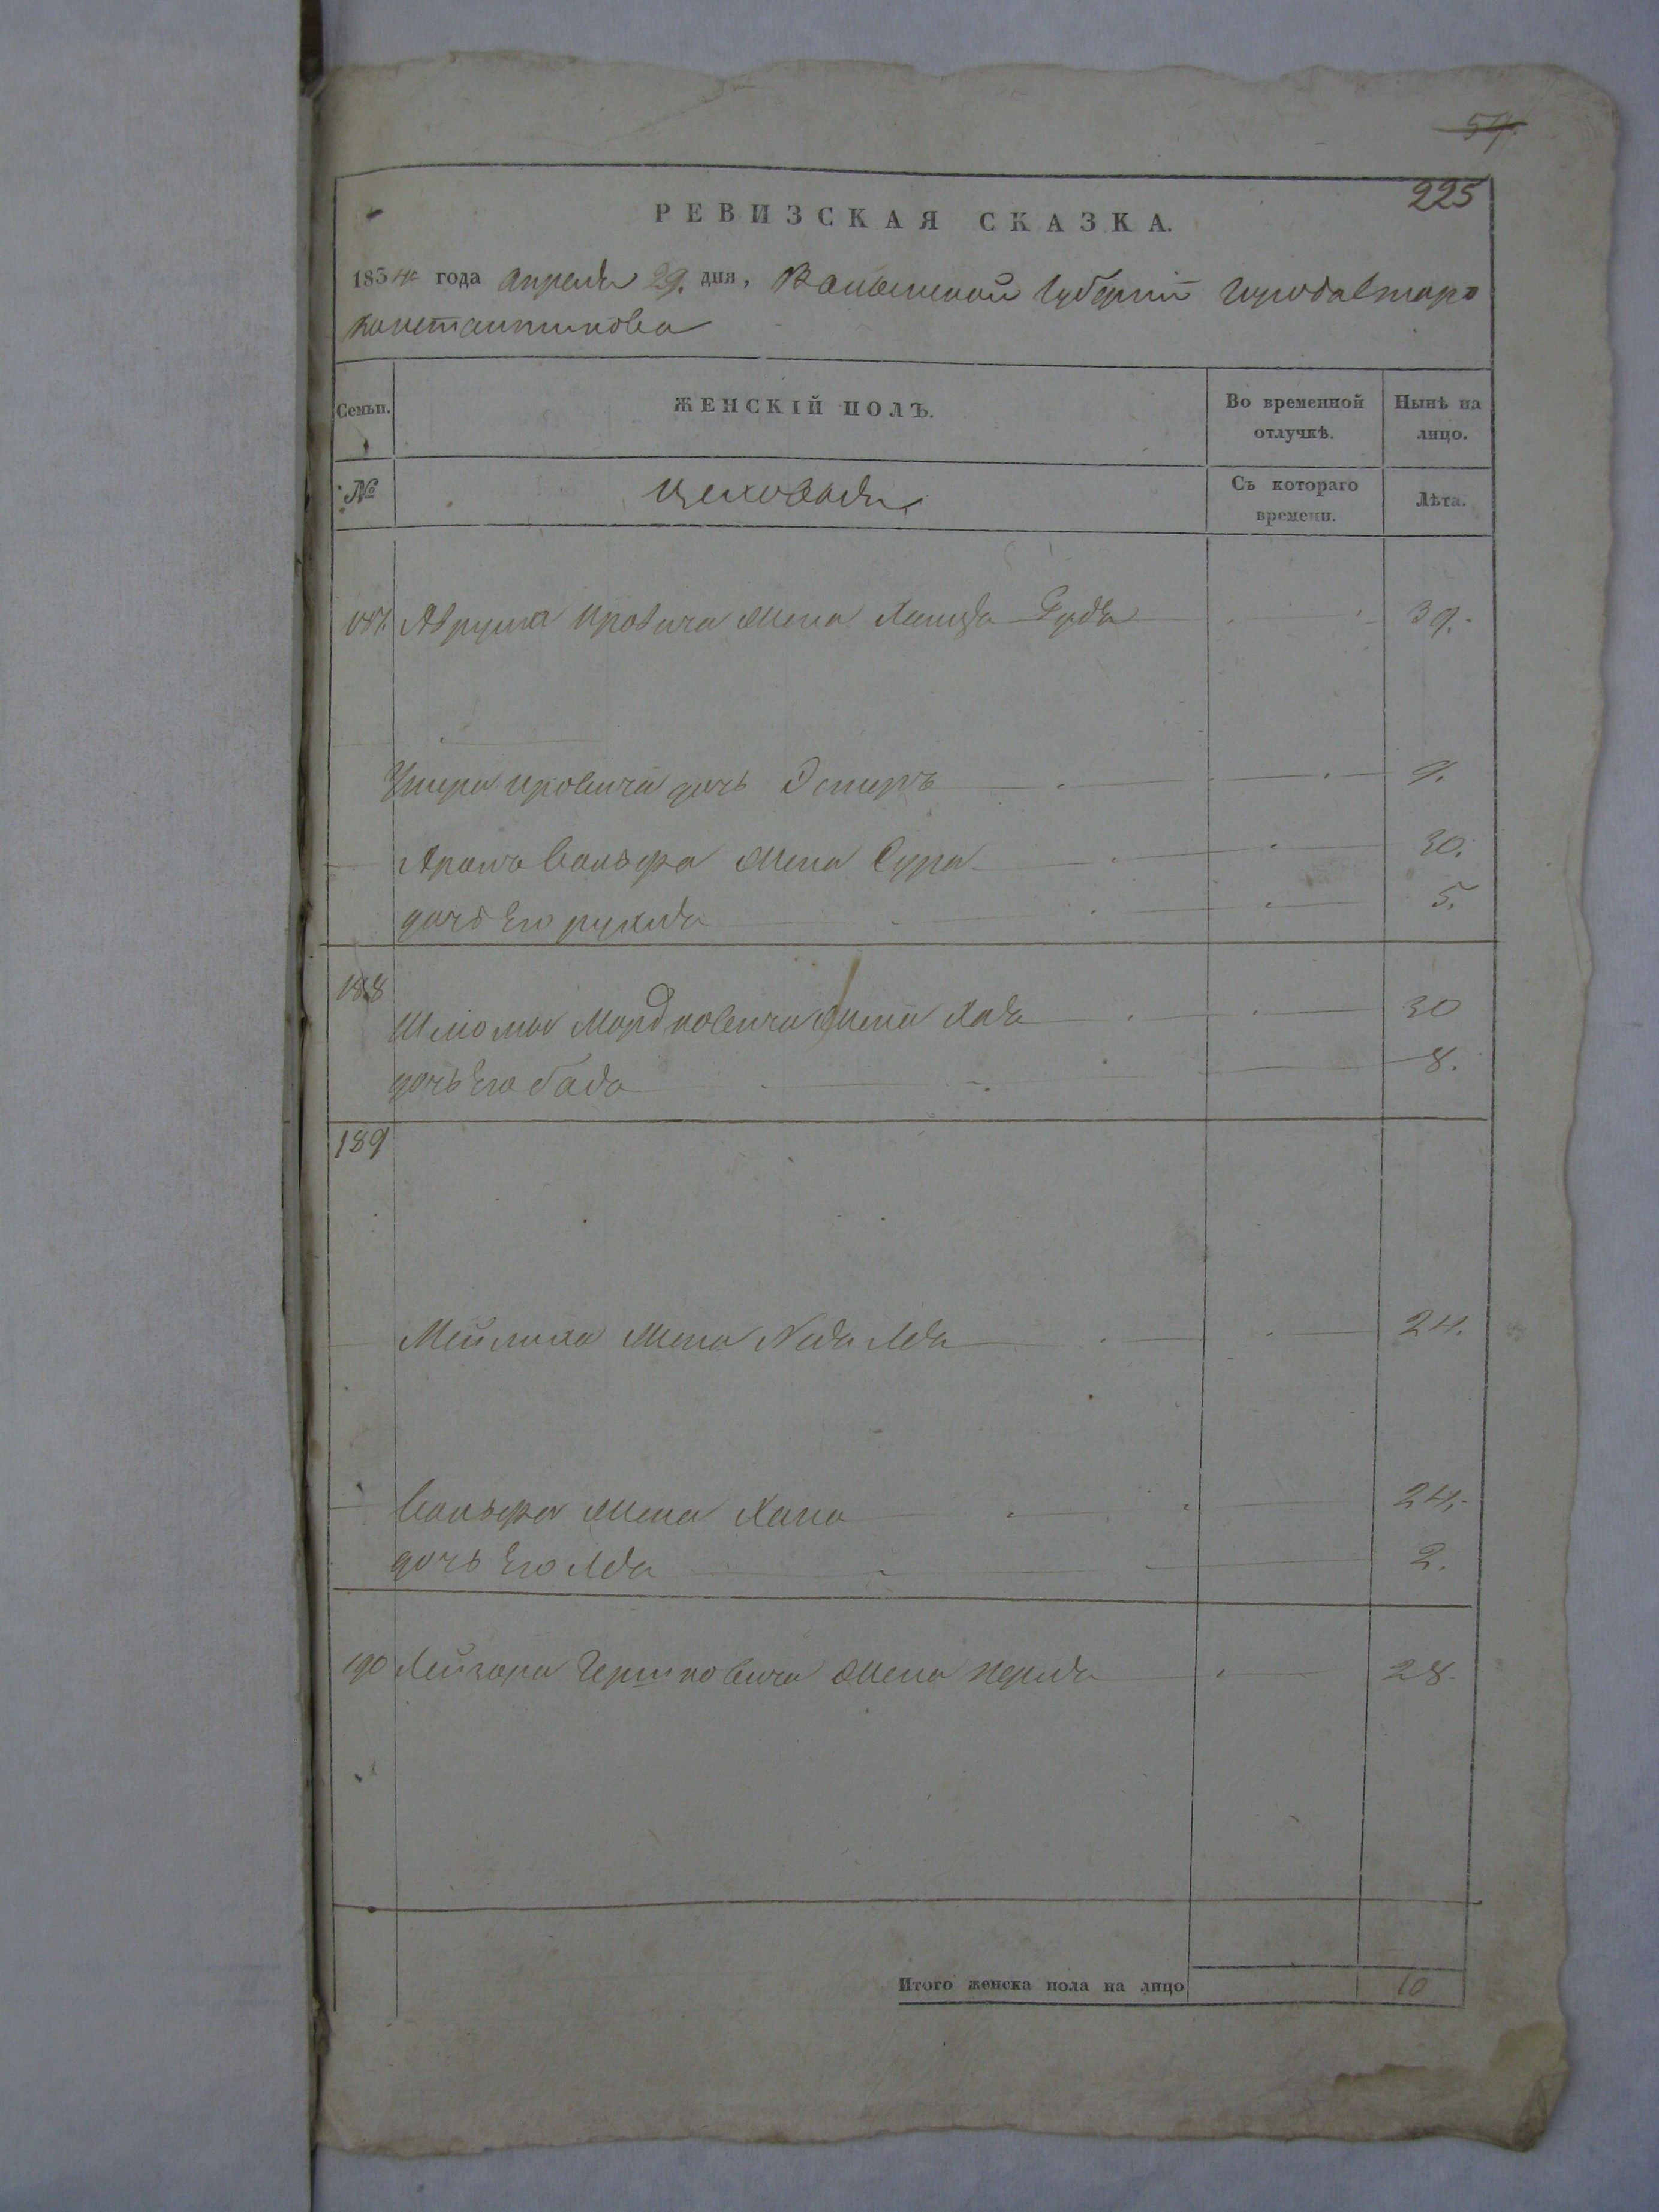 54.
225
РЕВИЗСКАЯ СКАЗКА.
1834 года Апреля 29. дня, Волынской Губерніи Города Старо
константинова
Семьи. ЖЕНСКІЙ ПОЛЪ. Во временной отлучкѣ. Нынѣ на лицо.
№ Цеховыя Съ котораго времени. Лѣта.
187. Аврума Ицковича жена Рудя 39.
Ушера Ицковича дочь Эстеръ
Арона Вольфа жена Сура 30.
дочь Его рухля 5.
188
Шломы Мордковича жена Хая 30
дочь Его 8.
189
Мейлиха жена 24.
Вольфа жена Хана 24.
дочь Его 2.
190 Лейзора Гершковича жена перля 28.
Итого женска пола на лицо 10